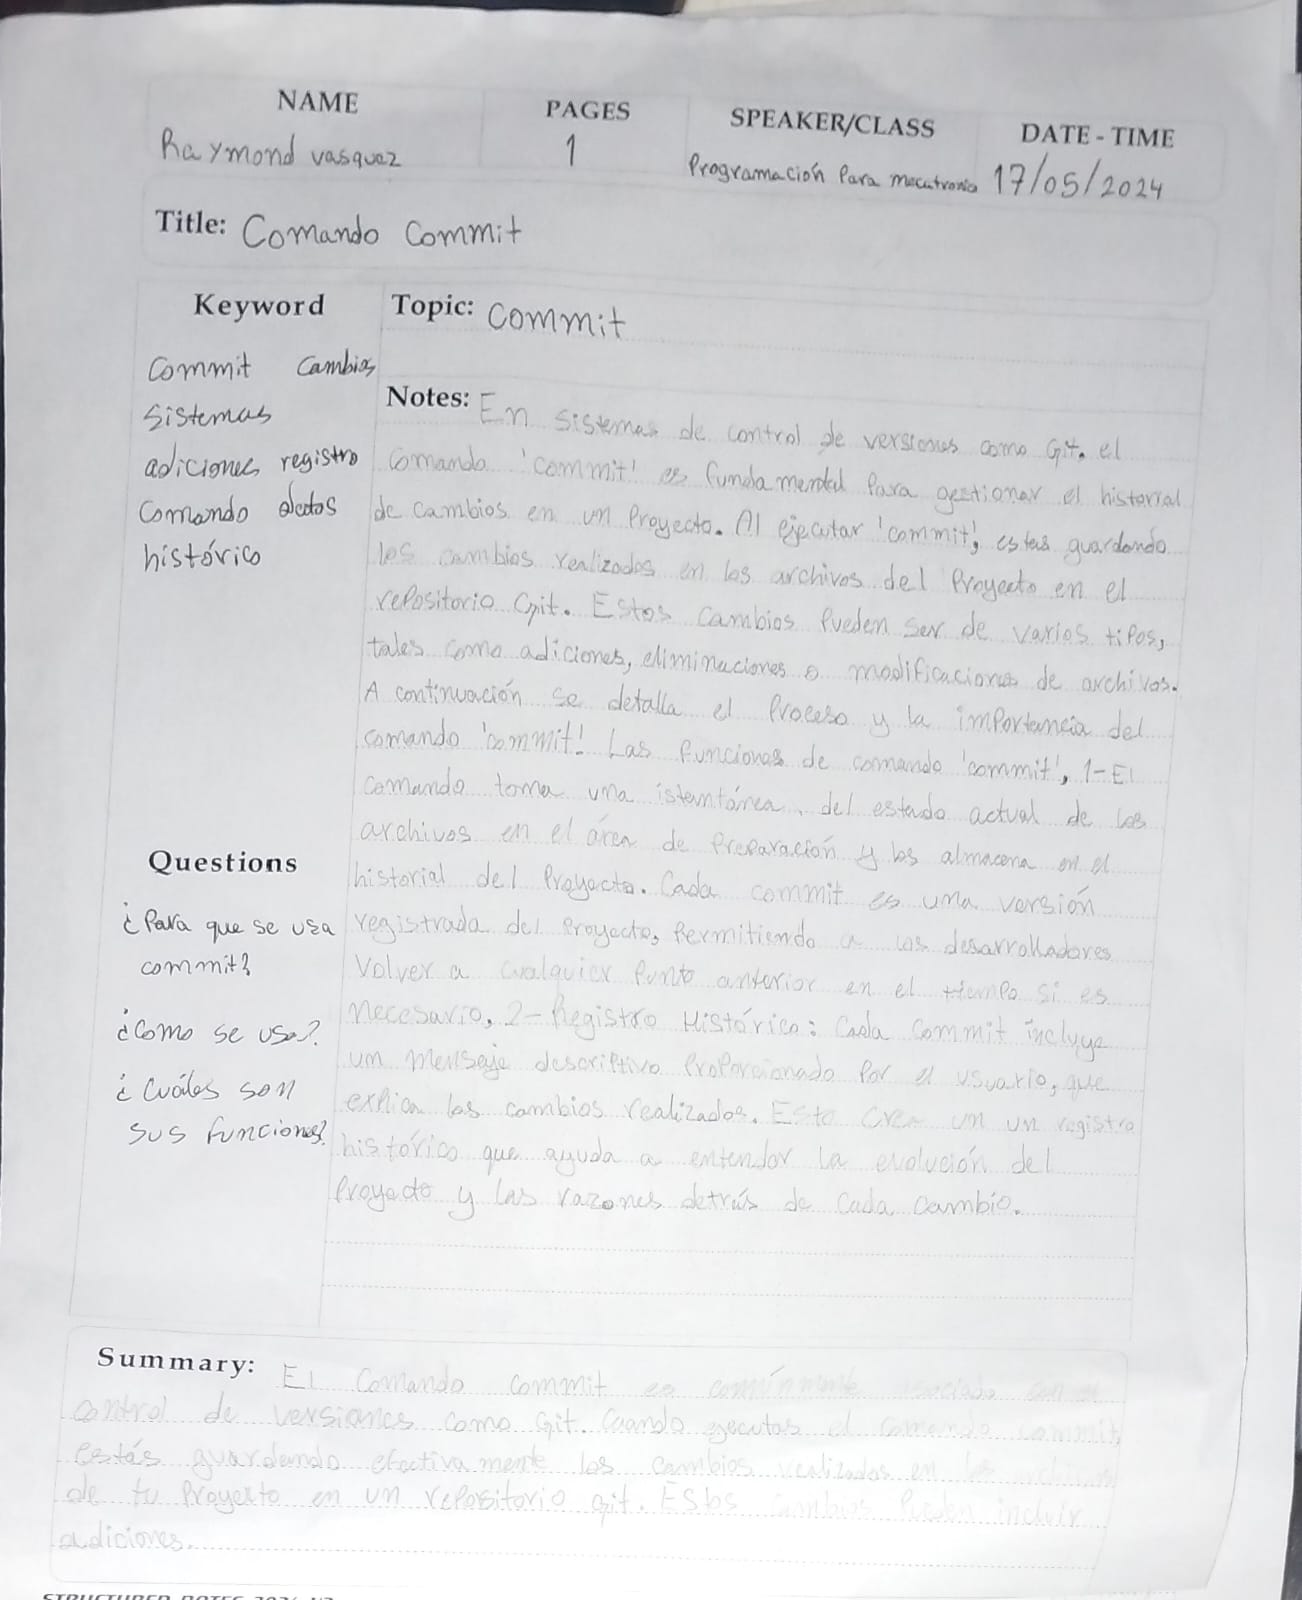 NAME
PAGES
SPEAKER/CLASS
DATE - TIME
Raymond vasquez
1
Programación Para mecatronic
17/05/2024
Title: Comando Commit
Keyword
Commit Cambios
Sistemas
adiciones registro
Comando datos
histórico
Topic: Commit
Notes: En sistemas de control de versiones como Git. el
Comando 'commit' es fundamental Para gestionar el historial
de cambios en un Proyecto. Al ejecutar 'commit', estas guardando
los cambios realizados en los archivos del Proyecto en el
repositorio Git. Estos cambios Pueden ser de varios tipos,
tales como adiciones, eliminaciones o modificaciones de archivos.
A continuación se detalla el Proceso y la importancia del
comando 'commit'. Las funciones de comando 'commit', 1-El
comando toma una istantánea del estado actual de los
archivos en el área de Preparación y los almacena en el
historial del Proyecto. Cada commit es una versión
registrada del Proyecto, Permitiendo a los desarrolladores
Volver a cualquier Punto anterior en el tiempo si es
Necesario, 2- Registro Histórico: Cada Commit incluye
un mensaje descriptivo Proporcionado Por el usuario, que
explica los cambios realizados. Esto crea un un registro
histórico que ayuda a entender la evolución del
Proyecto y las razones detrás de Cada Cambio.
Questions
¿Para que se usa
commit?
¿Como se usa?
¿Cuáles son
sus funciones?
Summary: El Comando commit es comúnmente asociado con el
control de versiones como Git. Cuando ejecutas el comando commit,
estás guardando efectivamente los cambios realizados en los archivos
de tu Proyecto en un repositorio git. Estos cambios Pueden incluir
adiciones.